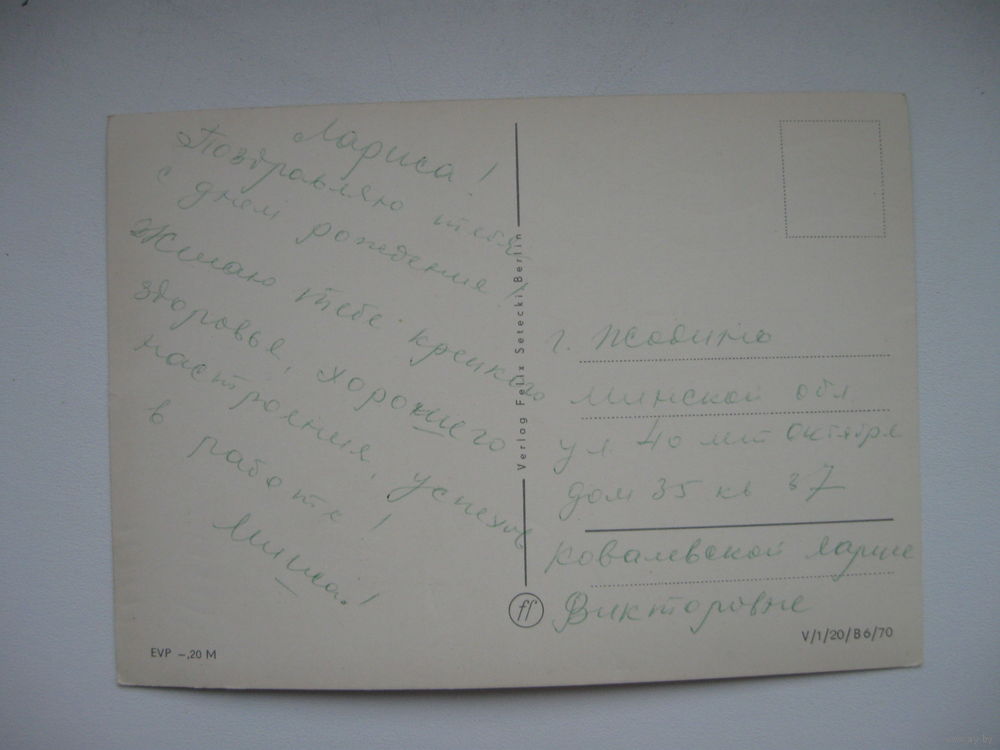 Лариса!
Поздравляю тебя
с днем рождения!
Желаю тебе крепкого
здоровья, хорошего
настроения, успехов
в работе!
Миша!
EVP –,20 M
Verlag Felix Setecki, Berlin
ff
г. Жодино
Минской обл
ул 40 лет октября
дом 35 кв 37
Ковалевской Ларисе
Викторовне
V/1/20/B6/70